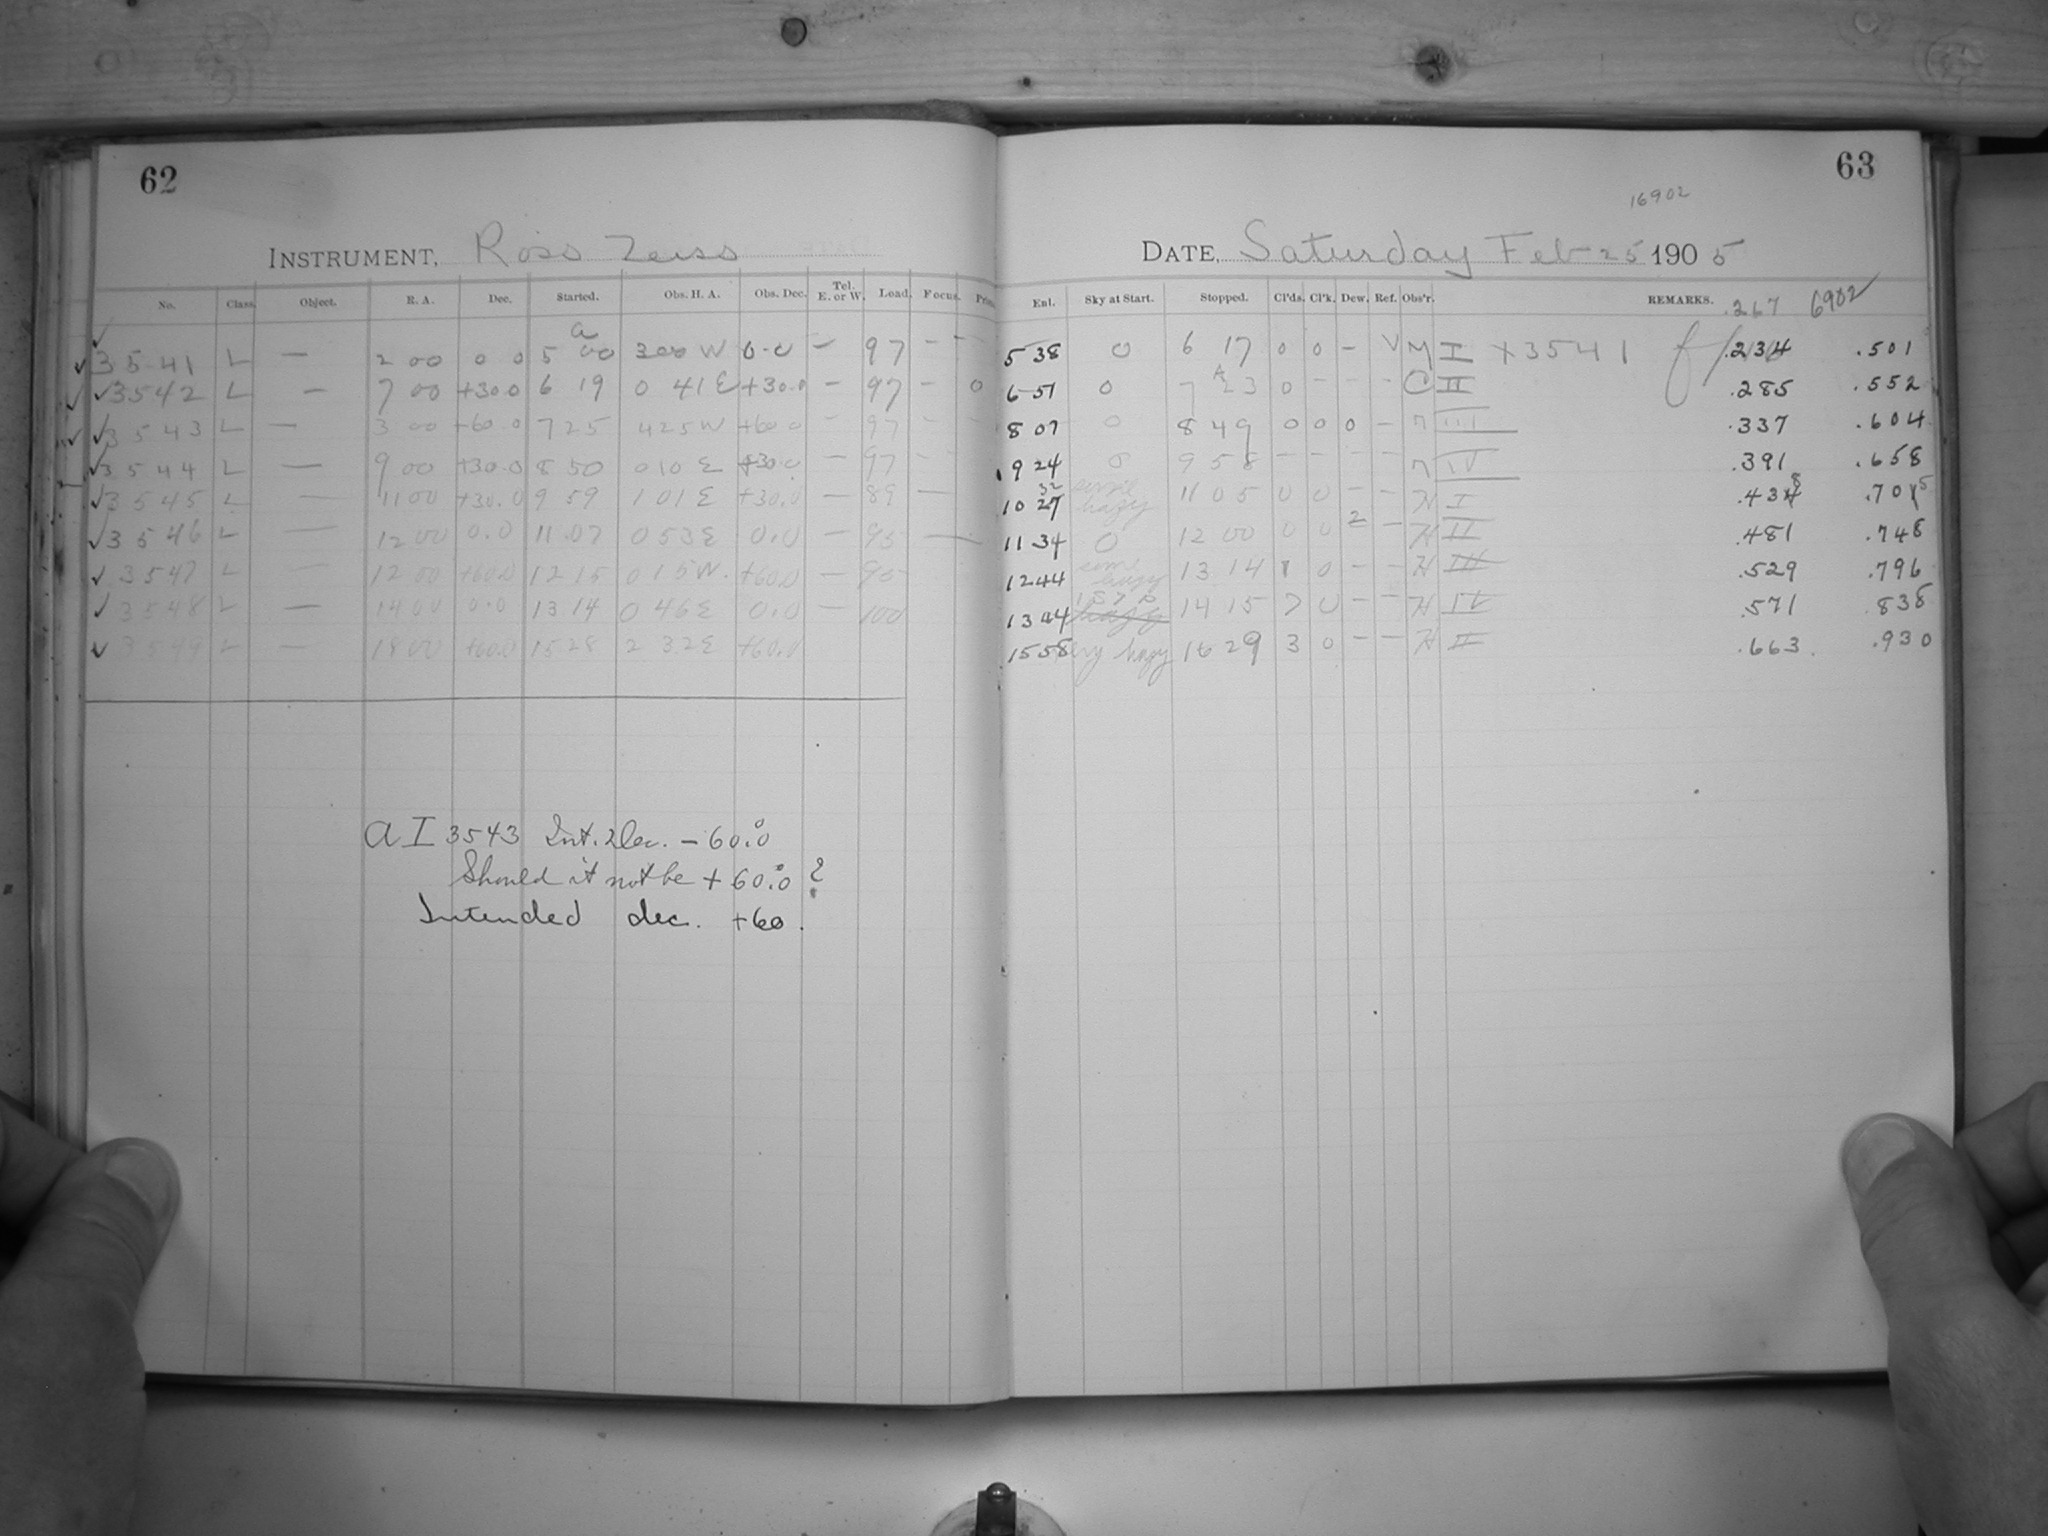 62
INSTRUMENT, Ross Zeiss
No. Class. Object. R. A. Dec. Started. Obs. H. A. Obs. Dec. Tel. E. or W. Load. Focus.
a
3541 L — 2 00 0 0 5 00 300 W 0.0 — 97 - -
3542 L — 7 00 +30.0 6 19 0 41 E +30.0 — 97 - 0
3543 L — 3 00 +60.0 7 25 4 25 W +60.0 97
3544 L — 9 00 +30.0 8 50 0 10 E +30.0 — 97
3545 L — 11 00 +30.0 9 59 1 01 E +30.0 — 89 —
3546 L — 12 00 0.0 11 07 0 53 E 0.0 — 95 —
3547 L — 12 00 +60.0 12 15 0 15 W. +60.0 — 90
3548 L — 14 00 0.0 13 14 0 46 E 0.0 — 100
3549 L — 18 00 +60.0 15 28 2 32 E +60.0
a I 3543 Int. Dec. – 60.°0
Should it not be + 60.°0 ?
Intended dec. +60.
63
16902
DATE, Saturday Feb 25 1905
Ent. Sky at Start. Stopped. Cl'ds. Cl'k. Dew. Ref. Obs'r. REMARKS. .267 6902
5 38 0 6 17 0 0 - V M I × 3541 .234 .501
6 51 0 7 23 0 - - - C II .285 .552
8 07 0 8 49 0 0 0 - III .337 .604
9 24 0 9 58 - - - - IV .391 .658
10 27 32 some hazy 11 05 0 0 - - H I .434 8 .701 5
11 34 0 12 00 0 0 2 - H II .481 .748
12 44 some hazy 13 14 1 0 - - H III .529 .796
13 44 hazy 14 15 7 0 - - H IV .571 .838
15 58 very hazy 16 29 3 0 - - H II .663. .930